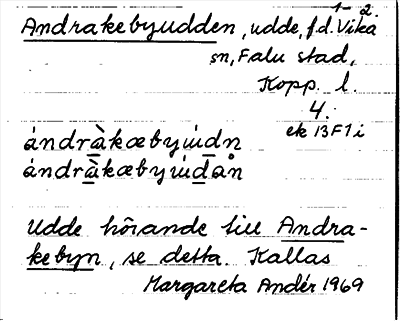 1-2.
Andrakebyudden, udde, f.d. Vika
sn, Falu stad,
Kopp. l.
4.
ek 13F1i
ándràkæbyẃdn
ándràkæbyẃdån
Udde hörande till Andra-
kebyn, se detta. Kallas
Margareta Andér 1969